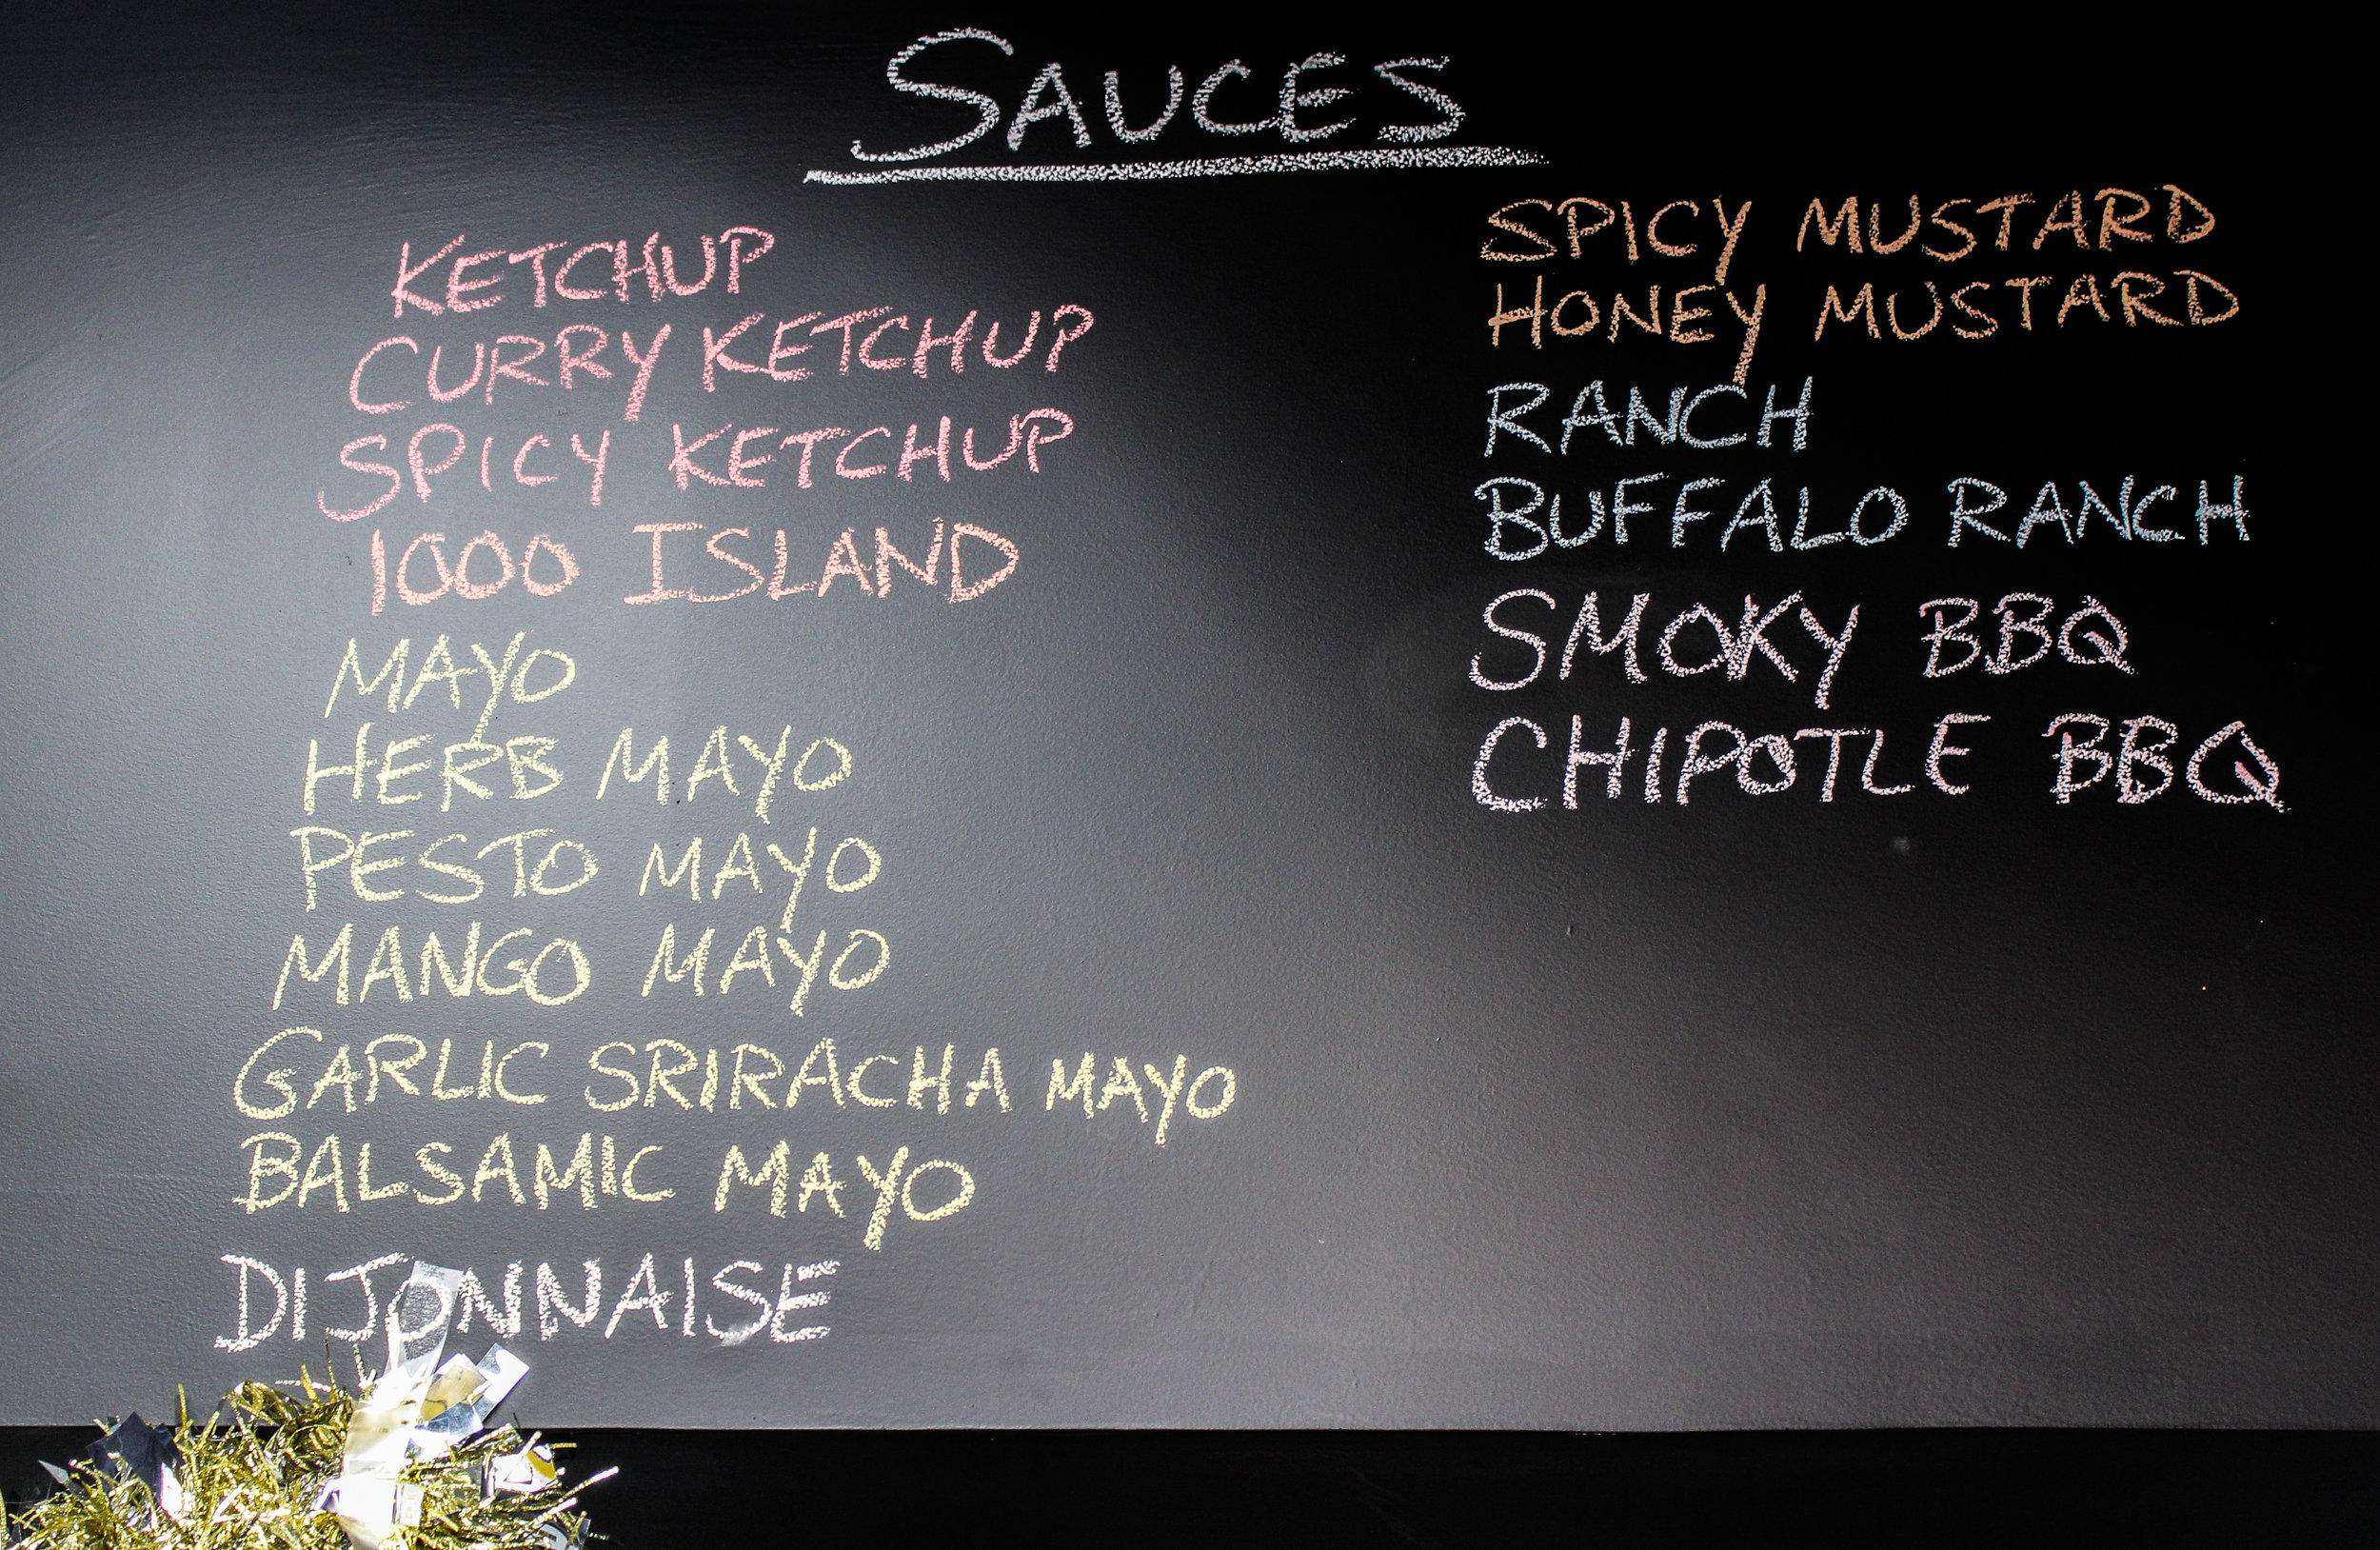 SAUCES
KETCHUP
CURRY KETCHUP
SPICY KETCHUP
1000 ISLAND
MAYO
HERB MAYO
PESTO MAYO
MANGO MAYO
GARLIC SRIRACHA MAYO
BALSAMIC MAYO
DIJONNAISE
SPICY MUSTARD
HONEY MUSTARD
RANCH
BUFFALO RANCH
SMOKY BBQ
CHIPOTLE BBQ